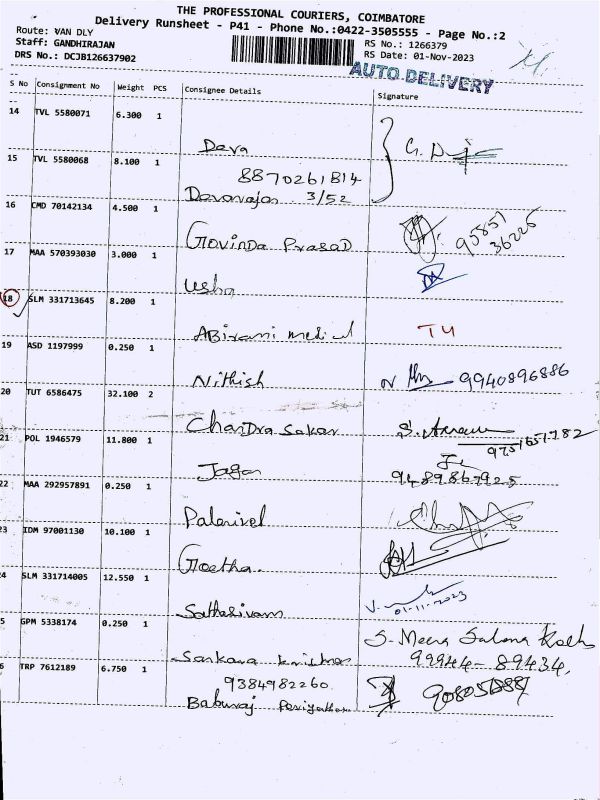 THE PROFESSIONAL COURIERS, COIMBATORE
Delivery Runsheet - P41 - Phone No.:0422-3505555 - Page No.:2
Route: VAN DLY
Staff: GANDHIRAJAN RS No.: 1266379
DRS No.: DCJB126637902 RS Date: 01-Nov-2023
AUTO DELIVERY
S No Consignment No Weight PCS Consignee Details Signature
14 TVL 5580071 6.300 1
Deva
15 TVL 5580068 8.100 1
8870261814
Devarajan 3/52
16 CMD 70142134 4.500 1
Govinda Prasad 95857
36225
17 MAA 570393030 3.000 1
Usha
18 SLM 331713645 8.200 1
Abirami medical T4
19 ASD 1197999 0.250 1
Nithish 9940896886
20 TUT 6586475 32.100 2
Chandra Sakar
21 POL 1946579 11.800 1 9751651782
Jagan 9489867925
22 MAA 292957891 0.250 1
Palanivel
23 IDM 97001130 10.100 1
Geetha
24 SLM 331714005 12.550 1
Sathasivam 01-11-2023
5 GPM 5338174 0.250 1
S. Meera
Sankara 99944-89434,
6 TRP 7612189 6.750 1
9384982260
Baburaj